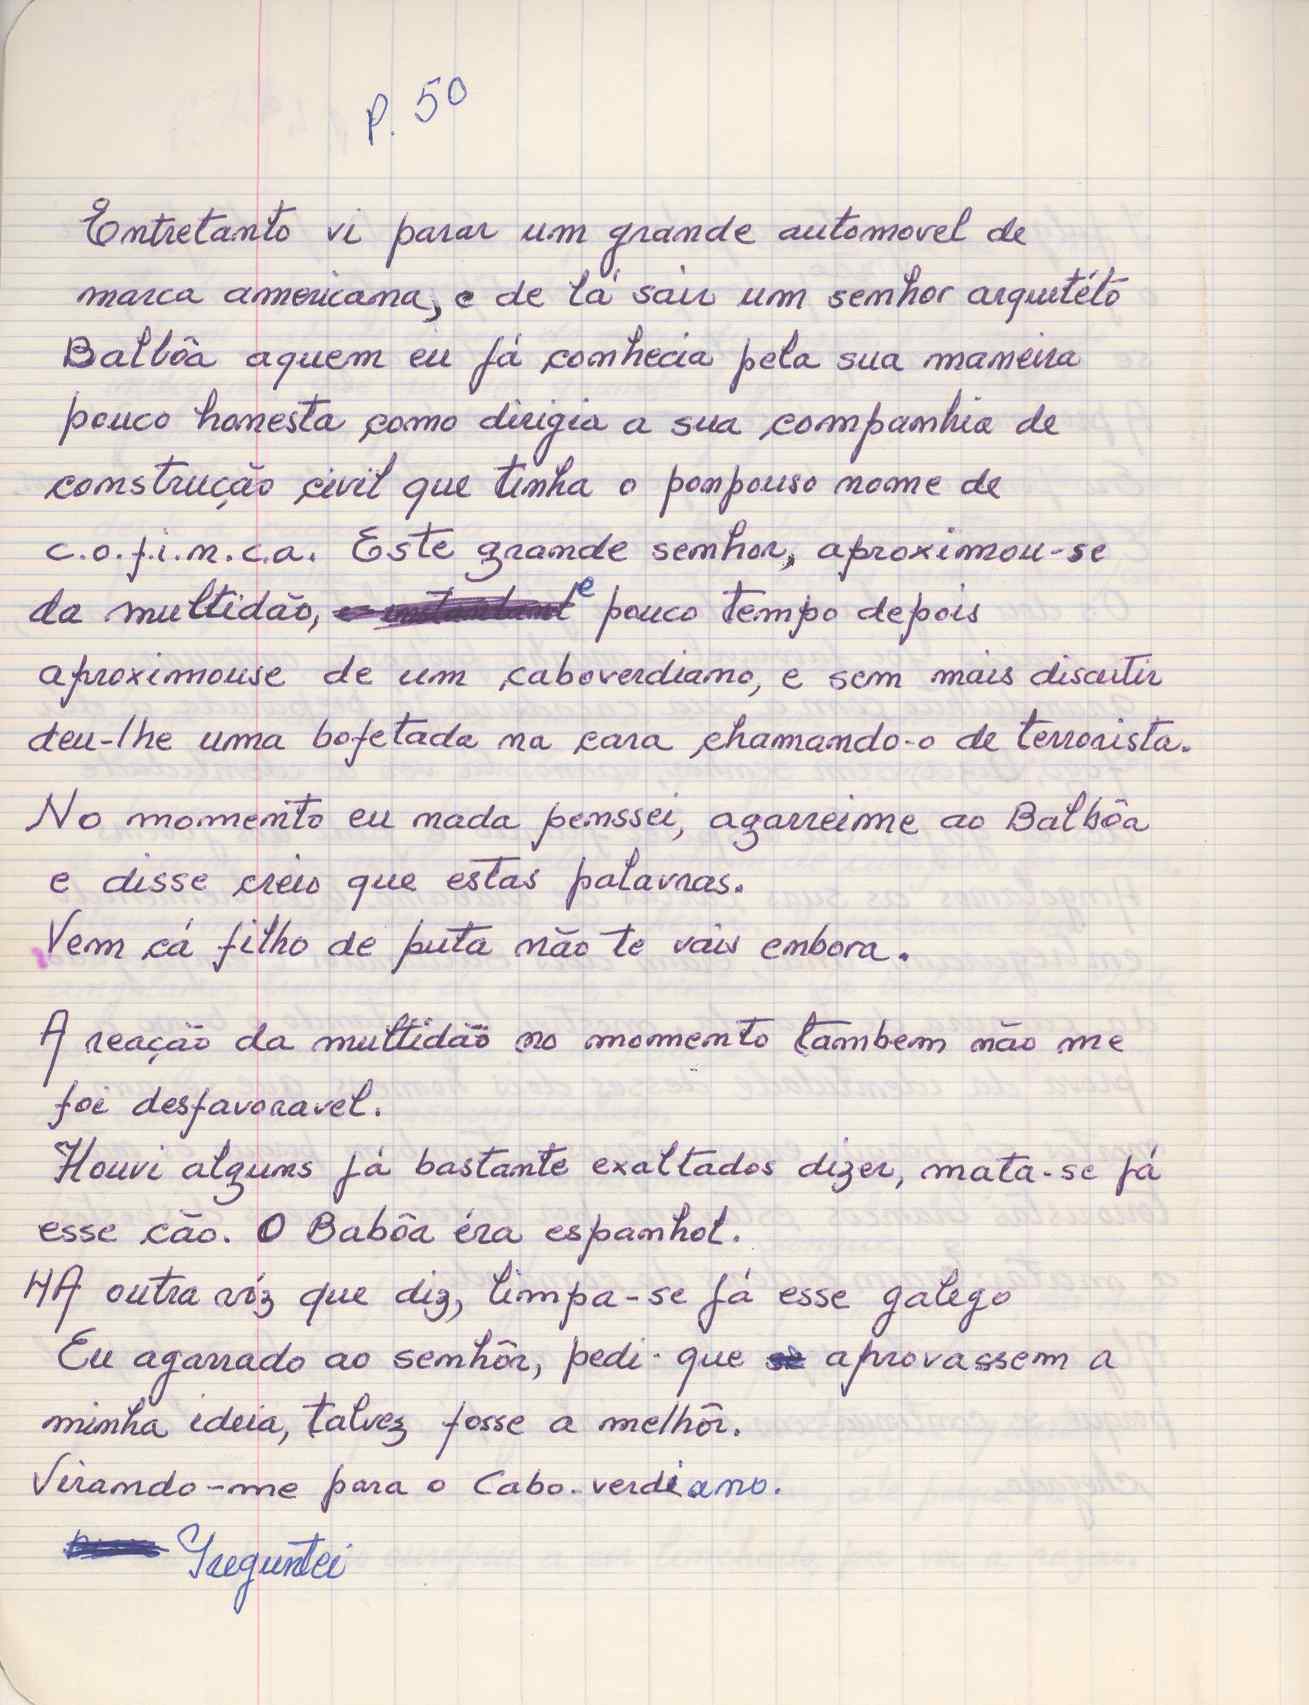 P. 50
Entretanto vi parar um grande automovel de
marca americana, e de lá sair um senhor arquitéto
Balbôa aquem eu já conhecia pela sua maneira
pouco honesta como dirigia a sua companhia de
construção civil que tinha o ponpouso nome de
c.o.f.i.n.c.a. Este grande senhor, aproximou-se
da multidão, e pouco tempo depois
aproximouse de um caboverdiano, e sem mais discutir
deu-lhe uma bofetada na cara chamando-o de terrorista.
No momento eu nada penssei, agarreime ao Balbôa
e disse creio que estas palavras.
Vem cá filho de puta não te vais embora.
A reação da multidão no momento tambem não me
foi desfavoravel.
Houvi alguns já bastante exaltados dizer, mata-se já
esse cão. O Babôa éra espanhol.
HA outra vóz que diz, limpa-se já esse galego
Eu agarrado ao senhôr, pedi-que aprovassem a
minha ideia, talvez fosse a melhôr.
Virando-me para o Cabo-verdiano.
Preguntei